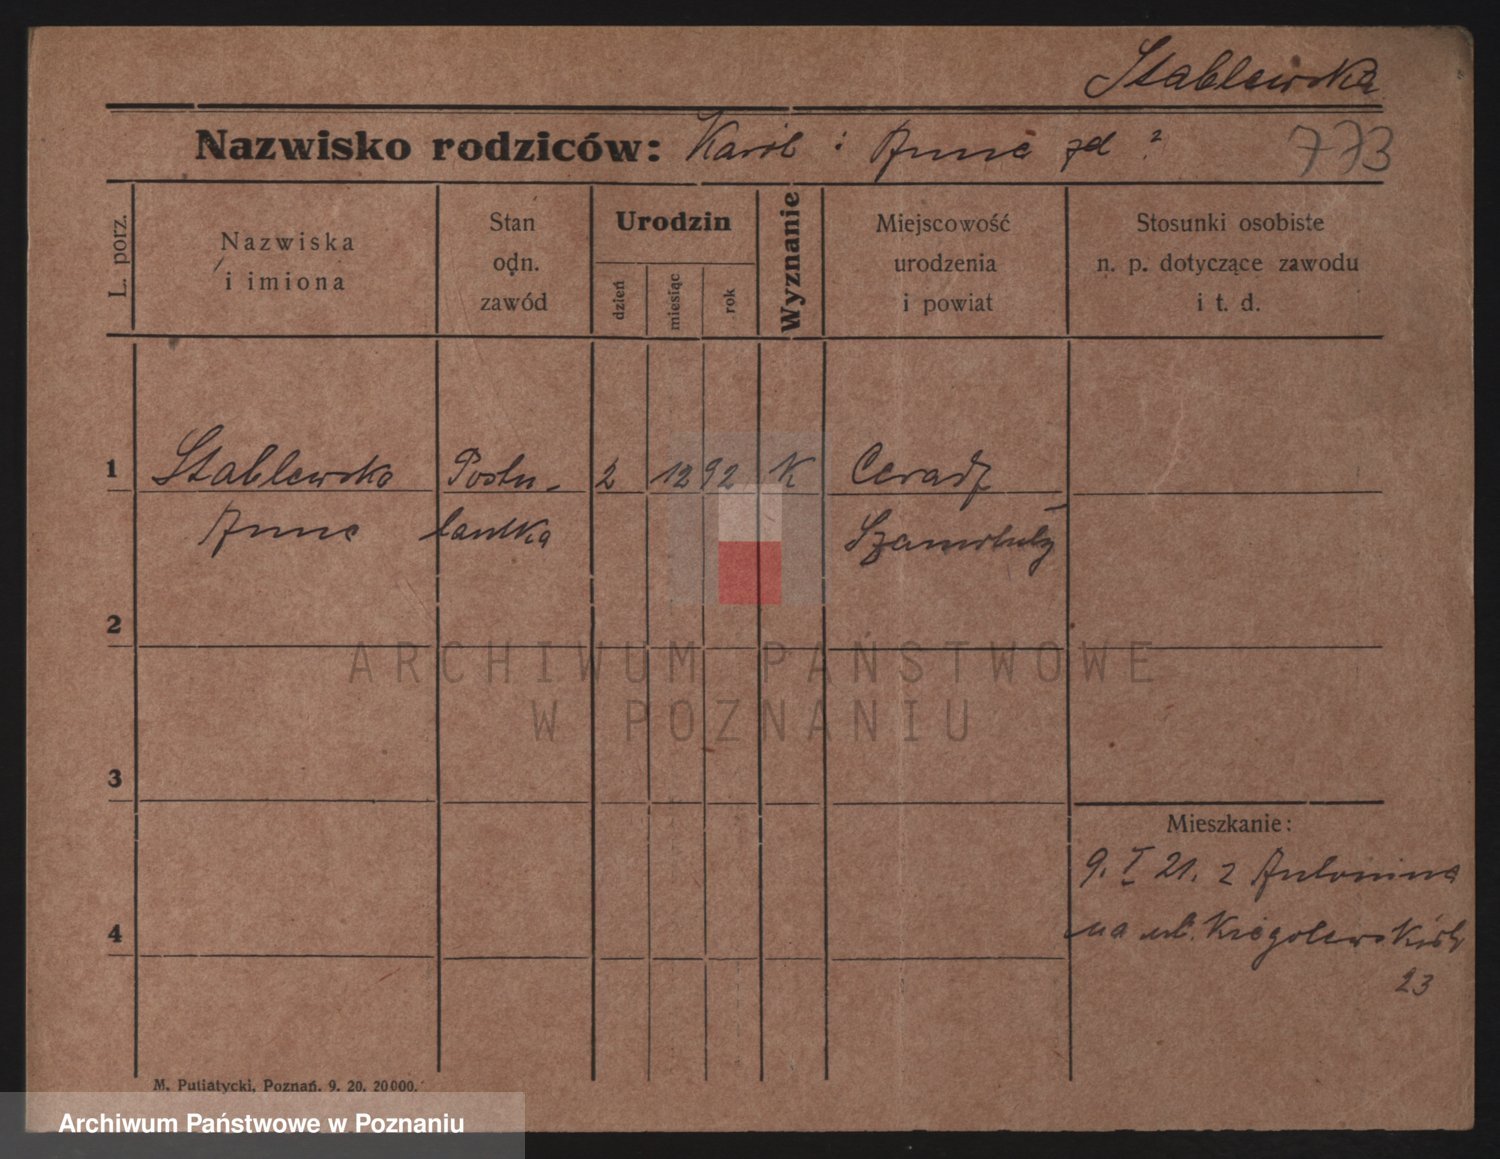 Stablewska
Nazwisko rodziców: Karol i Anna zd ? 773
L. porz.
Nazwiska
i imiona
Stan
odn.
zawód
Urodzin
dzień
miesiąc
rok
Wyznanie
Miejscowość
urodzenia
i powiat
Stosunki osobiste
n. p. dotyczące zawodu
i t. d.
1 Stablewska Postu- 2 12 92 K Ceradz
Anna lantka Szamotuły
2
ARCHIWUM PAŃSTWOWE
W POZNANIU
3
Mieszkanie:
9. I 21. z Antonina
4 na ul.
23
M. Putiatycki, Poznań. 9. 20. 20000.
Archiwum Państwowe w Poznaniu